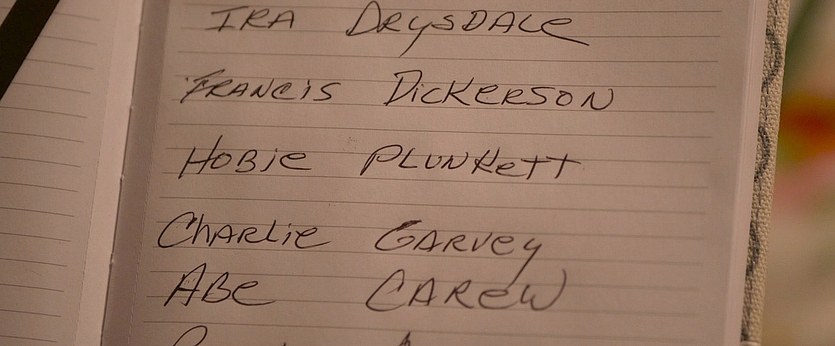 IRA DRYSDALE
FRANCIS DICKERSON
HOBIE PLUNKETT
CHARLIE GARVEY
ABE CAREW